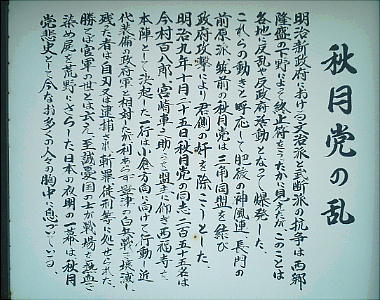 秋月党の乱
明治新政府における文治派と武断派の抗争は西郷
隆盛下野によって終止符をうたかに見えたがこのことは
各地に反乱や反政府活動となって爆発した
これらの動きと呼応して肥後の神風連長門の
前原派筑前の秋月党は三角同盟を結び
政府攻撃により君側の奸を除こうとした
明治九年十月二十五日秋月党の同志二百五十名は
今村百八郎、宮崎車之助って盟主に仰ぎ西福寺を
本陣として決起した一行は小倉方向に向けて行動し近
代装備の政府軍と相対した
残った者は自刃又は逮捕され斬罪徒刑等に処せられた
勝てば官軍の世とは云え至誠憂国の士が戦場を鮮血で
染め屍を荒野にさらした日本の夜明の一幕は秋月
党悲史として今なお多くの人々の胸中に息づいている